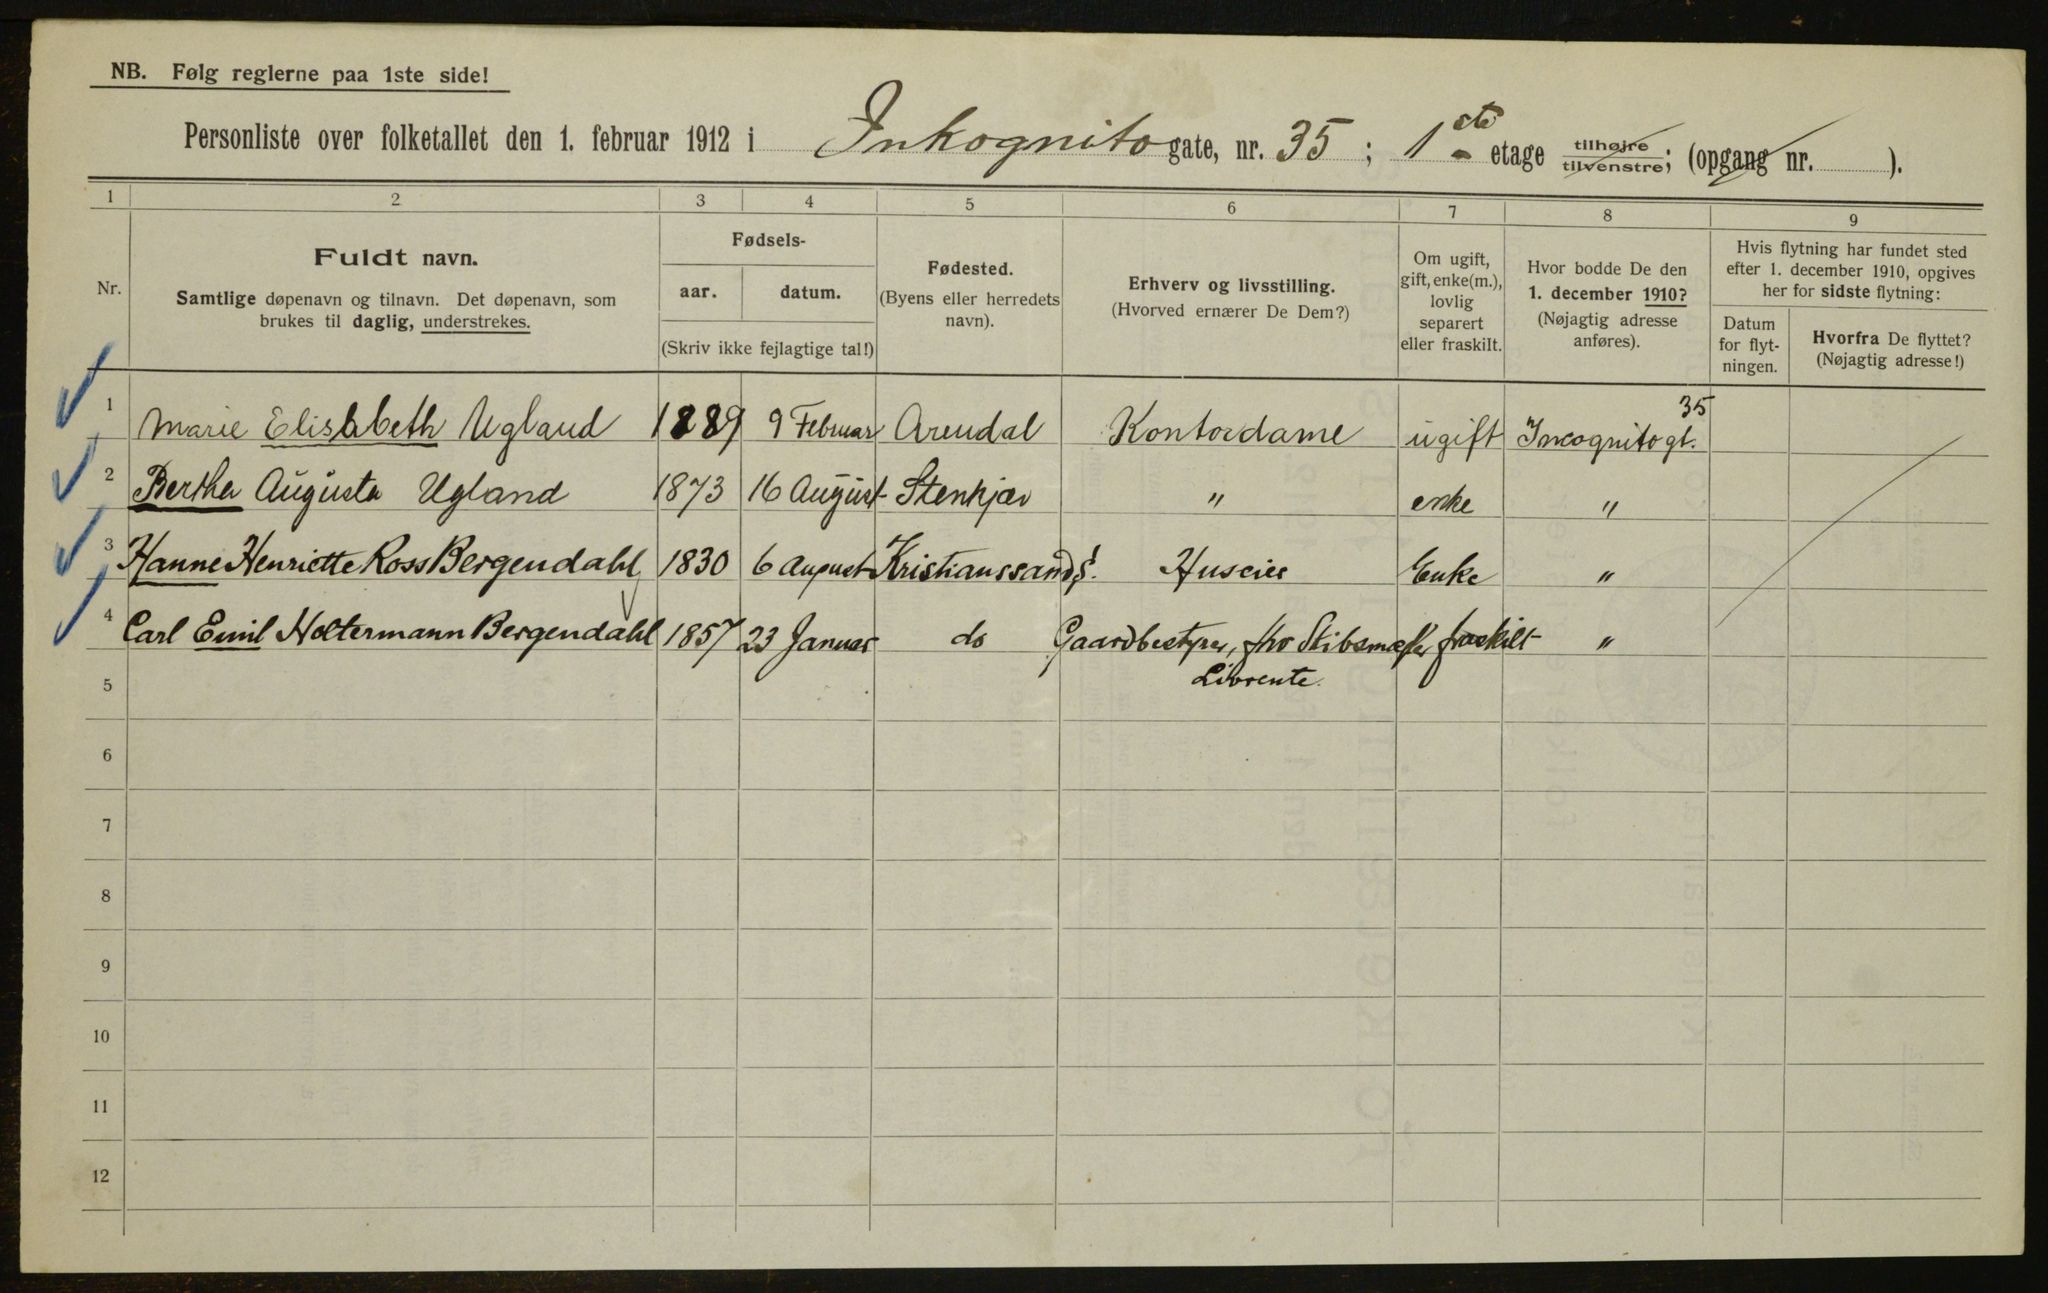 NB. Følg reglerne paa 1ste side!
Personliste over folketallet den 1. februar 1912 i Inkognito gate, nr. 35 ; 1ste etage tilhøjre tilvenstre; (opgang nr. ).
1 2 3 4 5 6 7 8 9
Nr.
Fuldt navn.
Samtlige døpenavn og tilnavn. Det døpenavn, som
brukes til daglig, understrekes.
Fødsels-
aar. datum.
(Skriv ikke fejlagtige tal!)
Fødested.
(Byens eller herredets
navn).
Erhverv og livsstilling.
(Hvorved ernærer De Dem?)
Om ugift,
gift, enke(m.),
lovlig
separert
eller fraskilt.
Hvor bodde De den
1. december 1910?
(Nøjagtig adresse
anføres).
Hvis flytning har fundet sted
efter 1. december 1910, opgives
her for sidste flytning:
Datum
for flyt-
ningen.
Hvorfra De flyttet?
(Nøjagtig adresse!)
1 Marie Elisabeth Ugland 1889 9 Februar Arendal Kontordame ugift Incognitogt. 35
2 Bertha Augusta Ugland 1873 16 August Stenkjær " enke "
3 Hanne Henriette Ross Bergendahl 1830 6 August Kristianssand S. Huseier Enke "
4 Carl Emil Holtermann Bergendahl 1857 23 Januar do Gaardbestyrer, fhv Skibsmægler fraskilt "
Livrente.
5
6
7
8
9
10
11
12